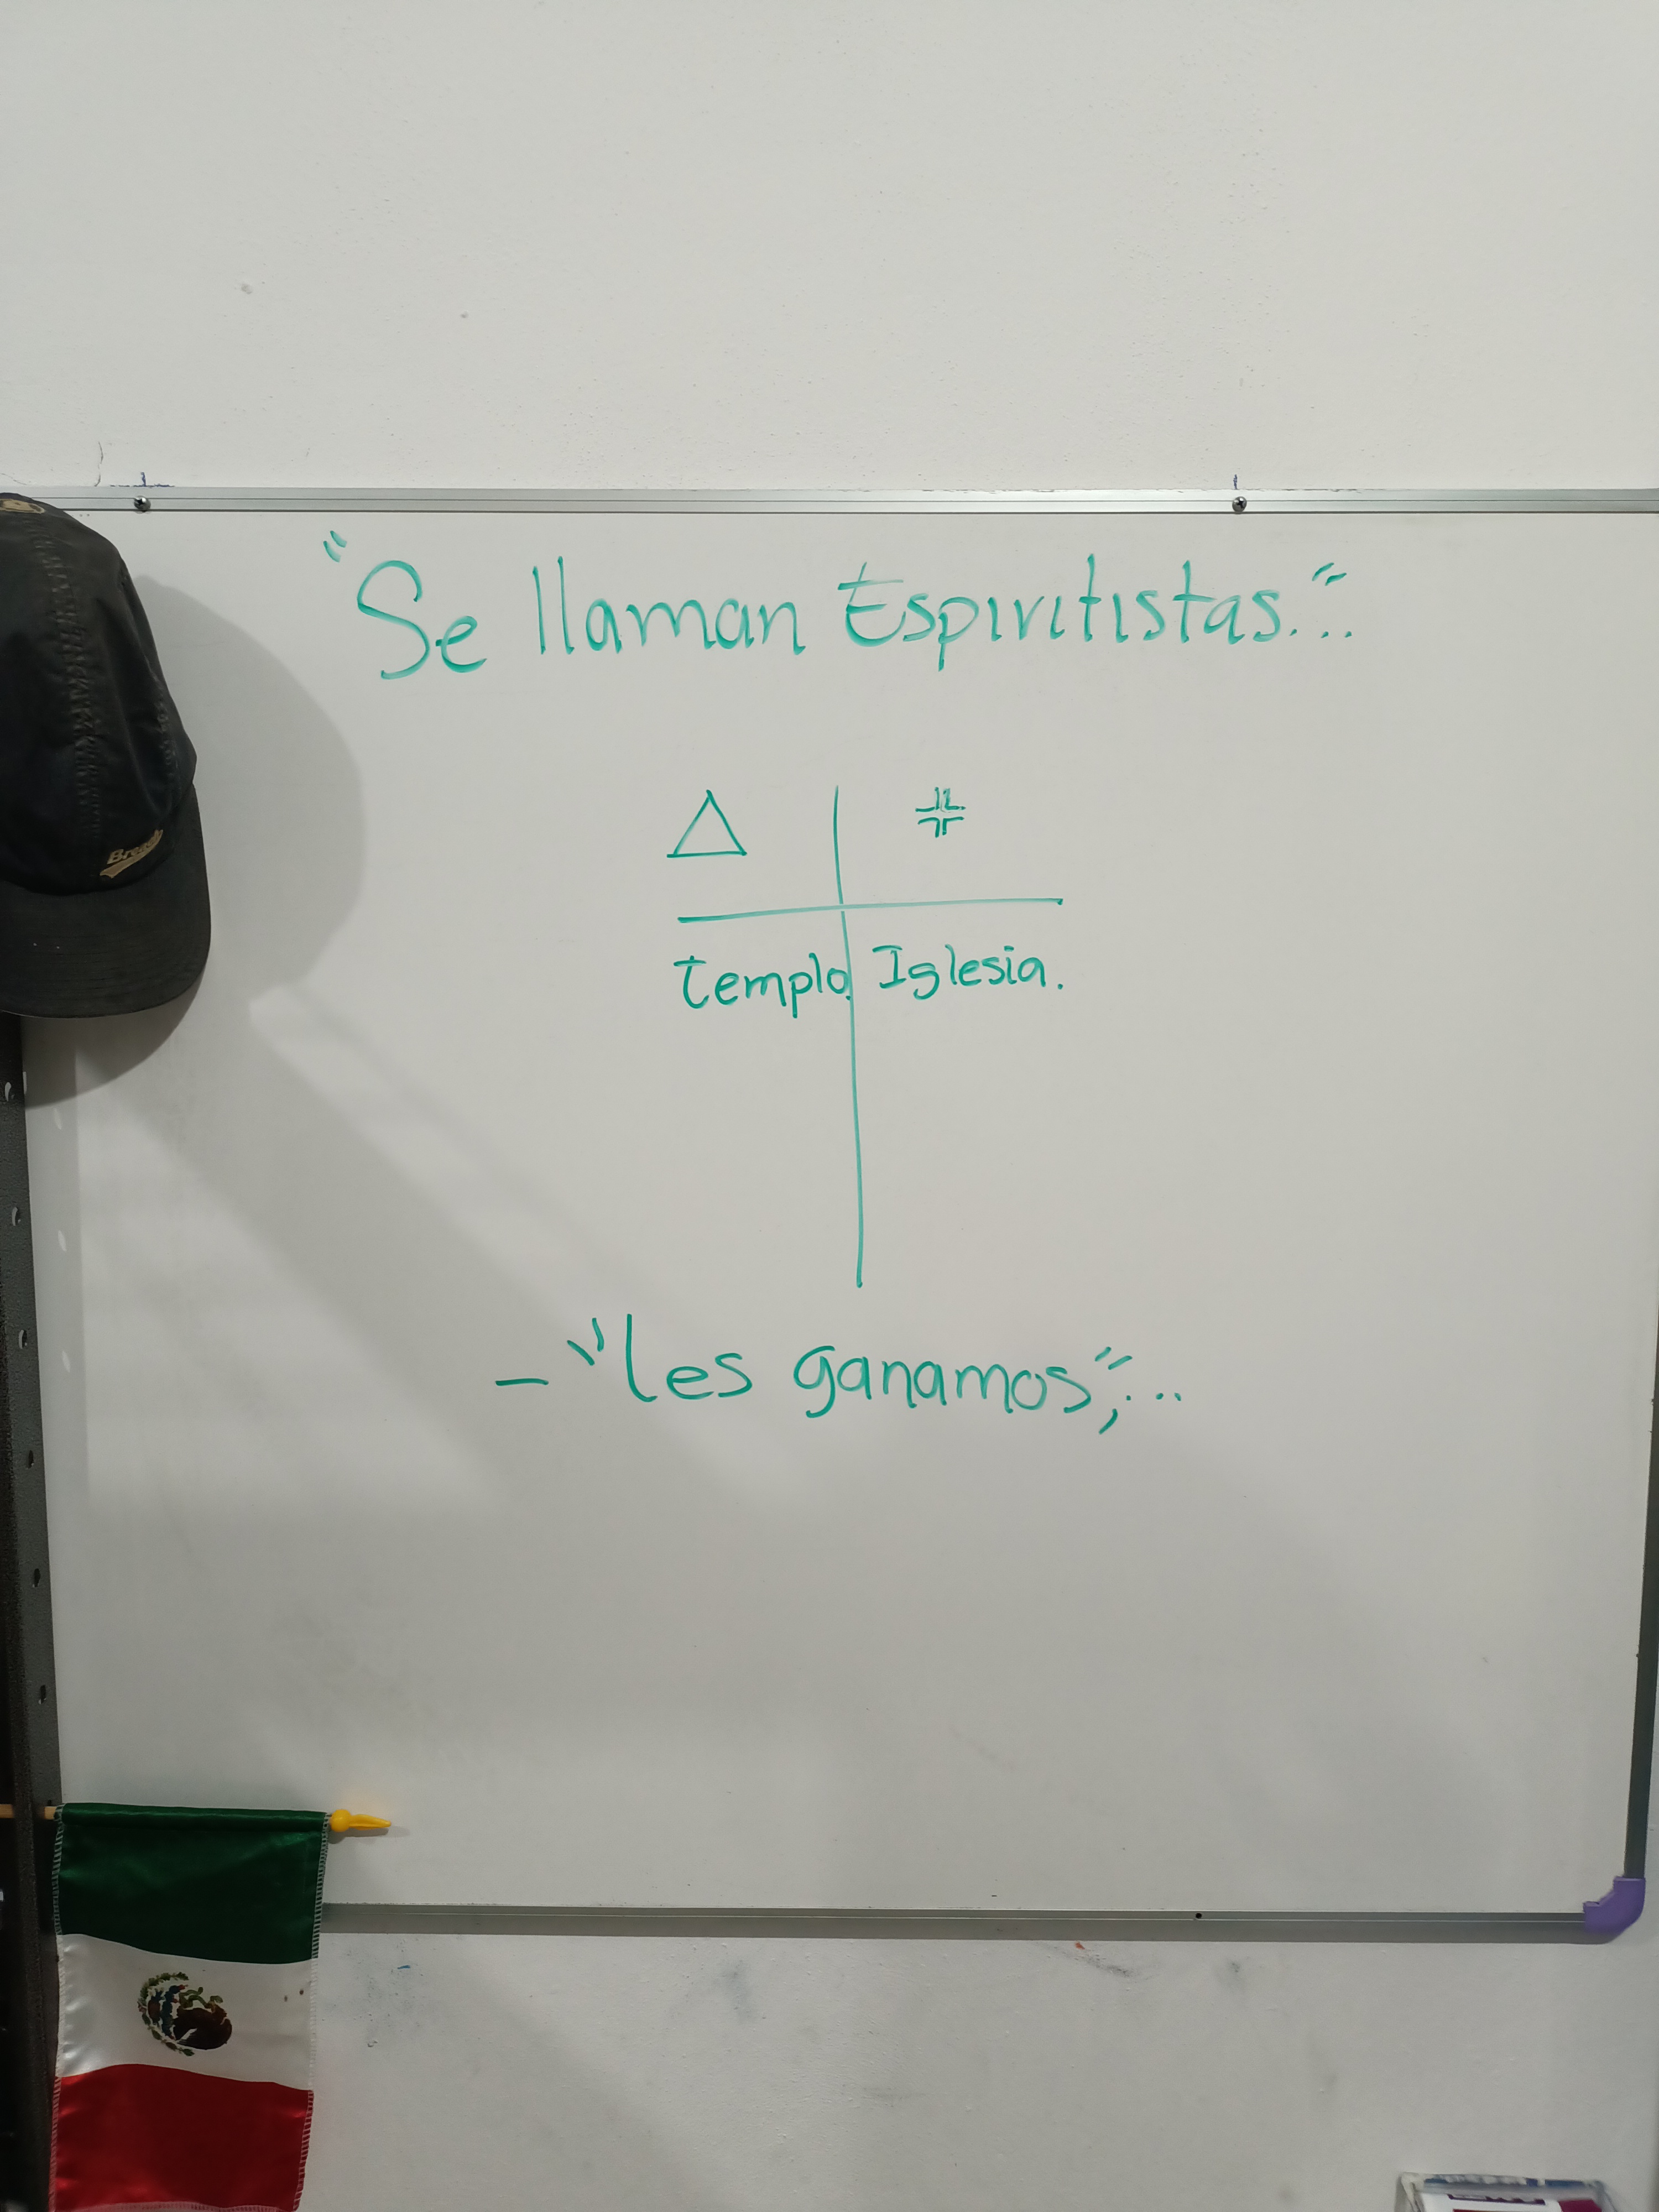 "Se llaman Espiritistas..."
Templo Iglesia.
- "les ganamos",...